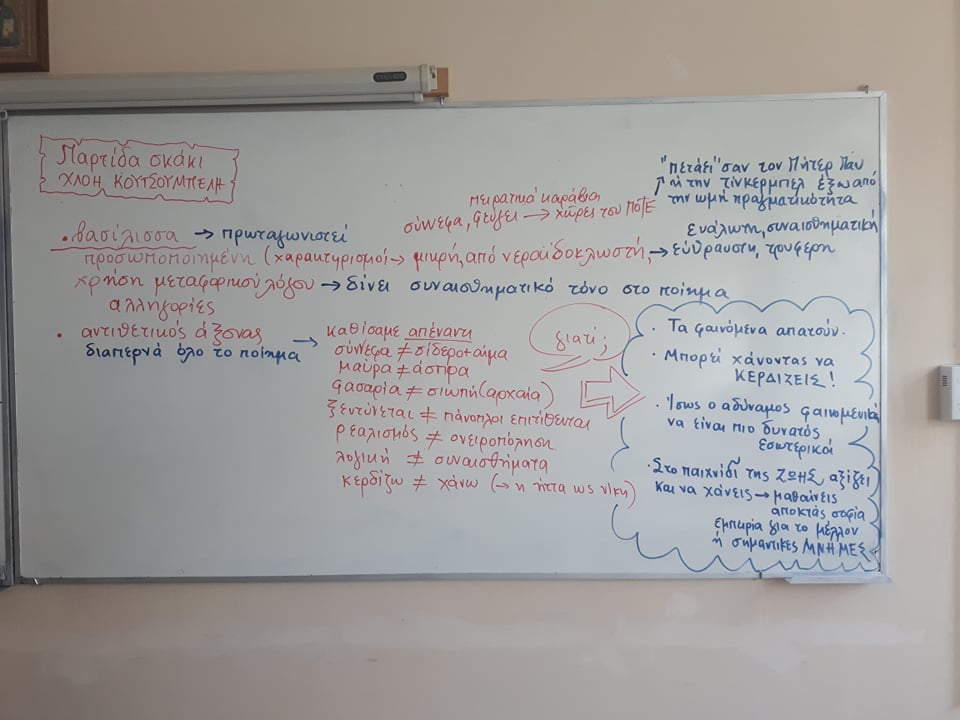 Παρτίδα σκάκι
ΧΛΟΗ ΚΟΥΤΣΟΥΜΠΕΛΗ
"πετάει" σαν τον Πήτερ Παν
ή την τίνκερμπελ έξω από
την ωμή πραγματικότητα
πειρατικά καράβια
σύννεφα, φεύγει → χώρες του ΠΟΤΕ
• βασίλισσα → πρωταγωνιστεί
προσωποποιημένη (χαρακτηρισμοί → μικρή, από νεροϊδοκλωστή, →
ευάλωτη, συναισθηματική
εύθραυστη, τρυφερη
χρήση μεταφορικού λόγου → δίνει συναισθηματικό τόνο στο ποίημα
αλληγορίες
• αντιθετικός άξονας
διαπερνά όλο το ποίημα →
καθίσαμε απέναντι
σύννεφα ≠ σίδερο + αίμα
μαύρα ≠ άσπρα
φασαρία ≠ σιωπή (αρχαία)
ξεντύνεται ≠ πάνοπλοι επιτίθενται
ρεαλισμός ≠ ονειροπόληση
λογική ≠ συναισθήματα
κερδίζω ≠ χάνω (→ η ήττα ως νίκη)
γιατί;
• Τα φαινόμενα απατούν.
• Μπορεί χάνοντας να
ΚΕΡΔΙΖΕΙΣ!
• Ίσως ο αδύναμος φαινομενικά
να είναι πιο δυνατός
εσωτερικά
• Στο παιχνίδι της ΖΩΗΣ αξίζει
και να χάνεις → μαθαίνεις
αποκτάς σοφία
εμπειρία για το μέλλον
ή σημαντικές ΜΝΗΜΕΣ